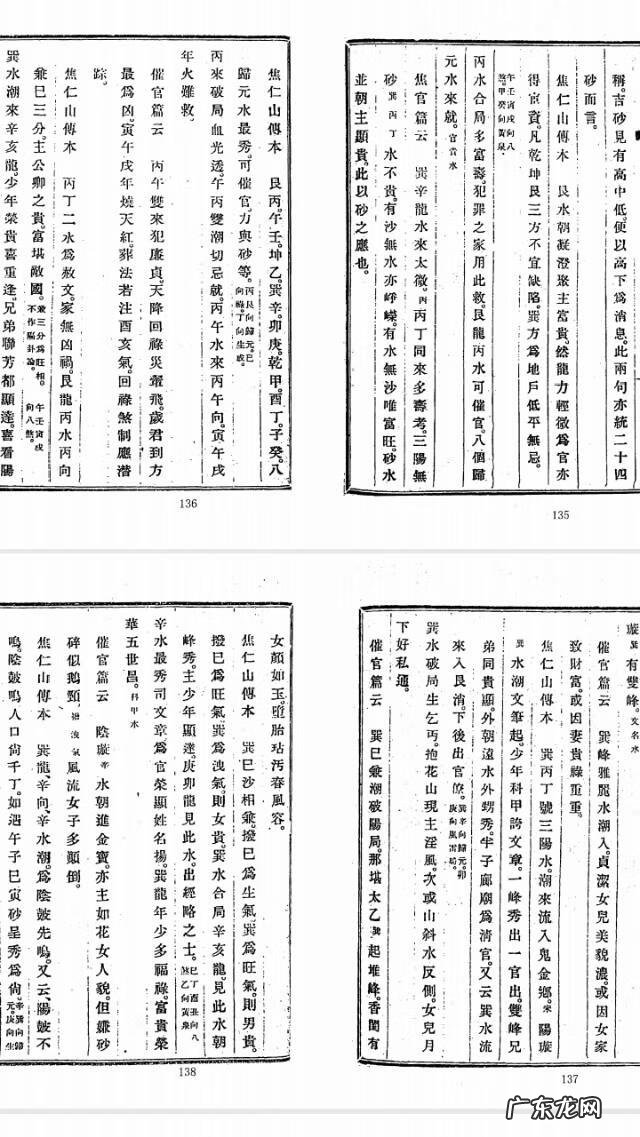 稱。吉砂見有高中低。便以高下為消息。此兩句亦統二十四
砂而言。
焦仁山傳本 艮水朝凝澄聚主富貴。然龍力輕微為官亦
得官資。凡乾坤艮三方不宜缺陷。巽方為地戶低平無忌。
午壬寅戌向八
煞。甲癸向黃泉。
丙水合局多富壽。犯罪之家用此救。艮龍丙水可催官。八個歸
元水來就。官貴水
焦官篇云 巽辛龍水來太微。丙丙丁同來多壽考。三陽無
砂巽丙丁水不貴。有沙無水亦崢嶸。有水無沙唯富旺。砂水
並朝主顯貴。此以砂之應也。
135
焦仁山傳本 艮丙。午壬。坤乙。巽辛。卯庚。乾甲。酉丁。子癸。八
歸元水最秀。可催官。力與砂等。丙艮向歸元。巳
向祿。丁向生成。
丙來破局血光透。午丙雙潮切忌就。丙午水來丙午向。寅午戌
年火難救。
催官篇云 丙午雙來犯廉貞。天降回祿災鬱飛。歲君到方
最為凶。寅午戌年燒天紅。葬法若注酉亥氣。回祿煞制應潛
踪。
焦仁山傳本 丙丁二水為赦文。家無凶禍。艮龍丙水丙向
兼巳三分。主公卿之貴。富堪敵國。兼三分為旺相。
不作騎卦論。午壬寅戌
向八煞。
巽水潮來辛亥龍。少年榮貴喜重逢。兄弟聯芳都顯達。喜看陽
136
璇巽有雙峰。文名水
催官篇云 巽峰雅麗水潮入。貞潔女兒美貌濃。或因女家
致財富。或因妻貴祿重重。
焦仁山傳本 巽丙丁號三陽水。潮來流入鬼金鄉。未 陽璇
巽水潮文筆起。少年科甲誇文章。一峰秀出一官出。雙峰兄
弟同貴顯。外朝遠水外甥秀。半子廊廟為清官。又云巽水流
來入艮消。下後出官僚。巽辛向歸元。卯
庚向風雷局。
巽水破局生乞丐。抱花山現主淫風。次或山斜水反側。女兒月
下好私通。
催官篇云 巽巳兼潮破陽局。那堪太乙巽起堆峰。香閨有
137
女顏如玉。墮胎玷污春風容。
焦仁山傳本 巽巳沙相兼。撥巳為生氣。巽為旺氣。則男貴。
撥巳為旺氣。巽為洩氣。則女貴。巽水合局辛亥龍。見此水朝
峰秀。主少年顯達。庚卯龍見此水。出經略之士。巳丁酉丑向八
煞乙向黃泉
辛水最秀司文章。為官榮顯姓名揚。巽龍年少多福祿。富貴榮
華五世昌。科甲水
催官篇云 陰璇辛水朝進金寶。亦主如花女人貌。但嫌砂
碎似鵝頸。風流女子多顛倒。
焦仁山傳本 巽龍。辛向。辛水潮。為陰皷先鳴。又云。陽皷不
鳴。陰皷鳴。人口尚千丁。如遇午子巳寅砂呈秀為尙。辛巽向歸
元。庚向生
138
广东龙网